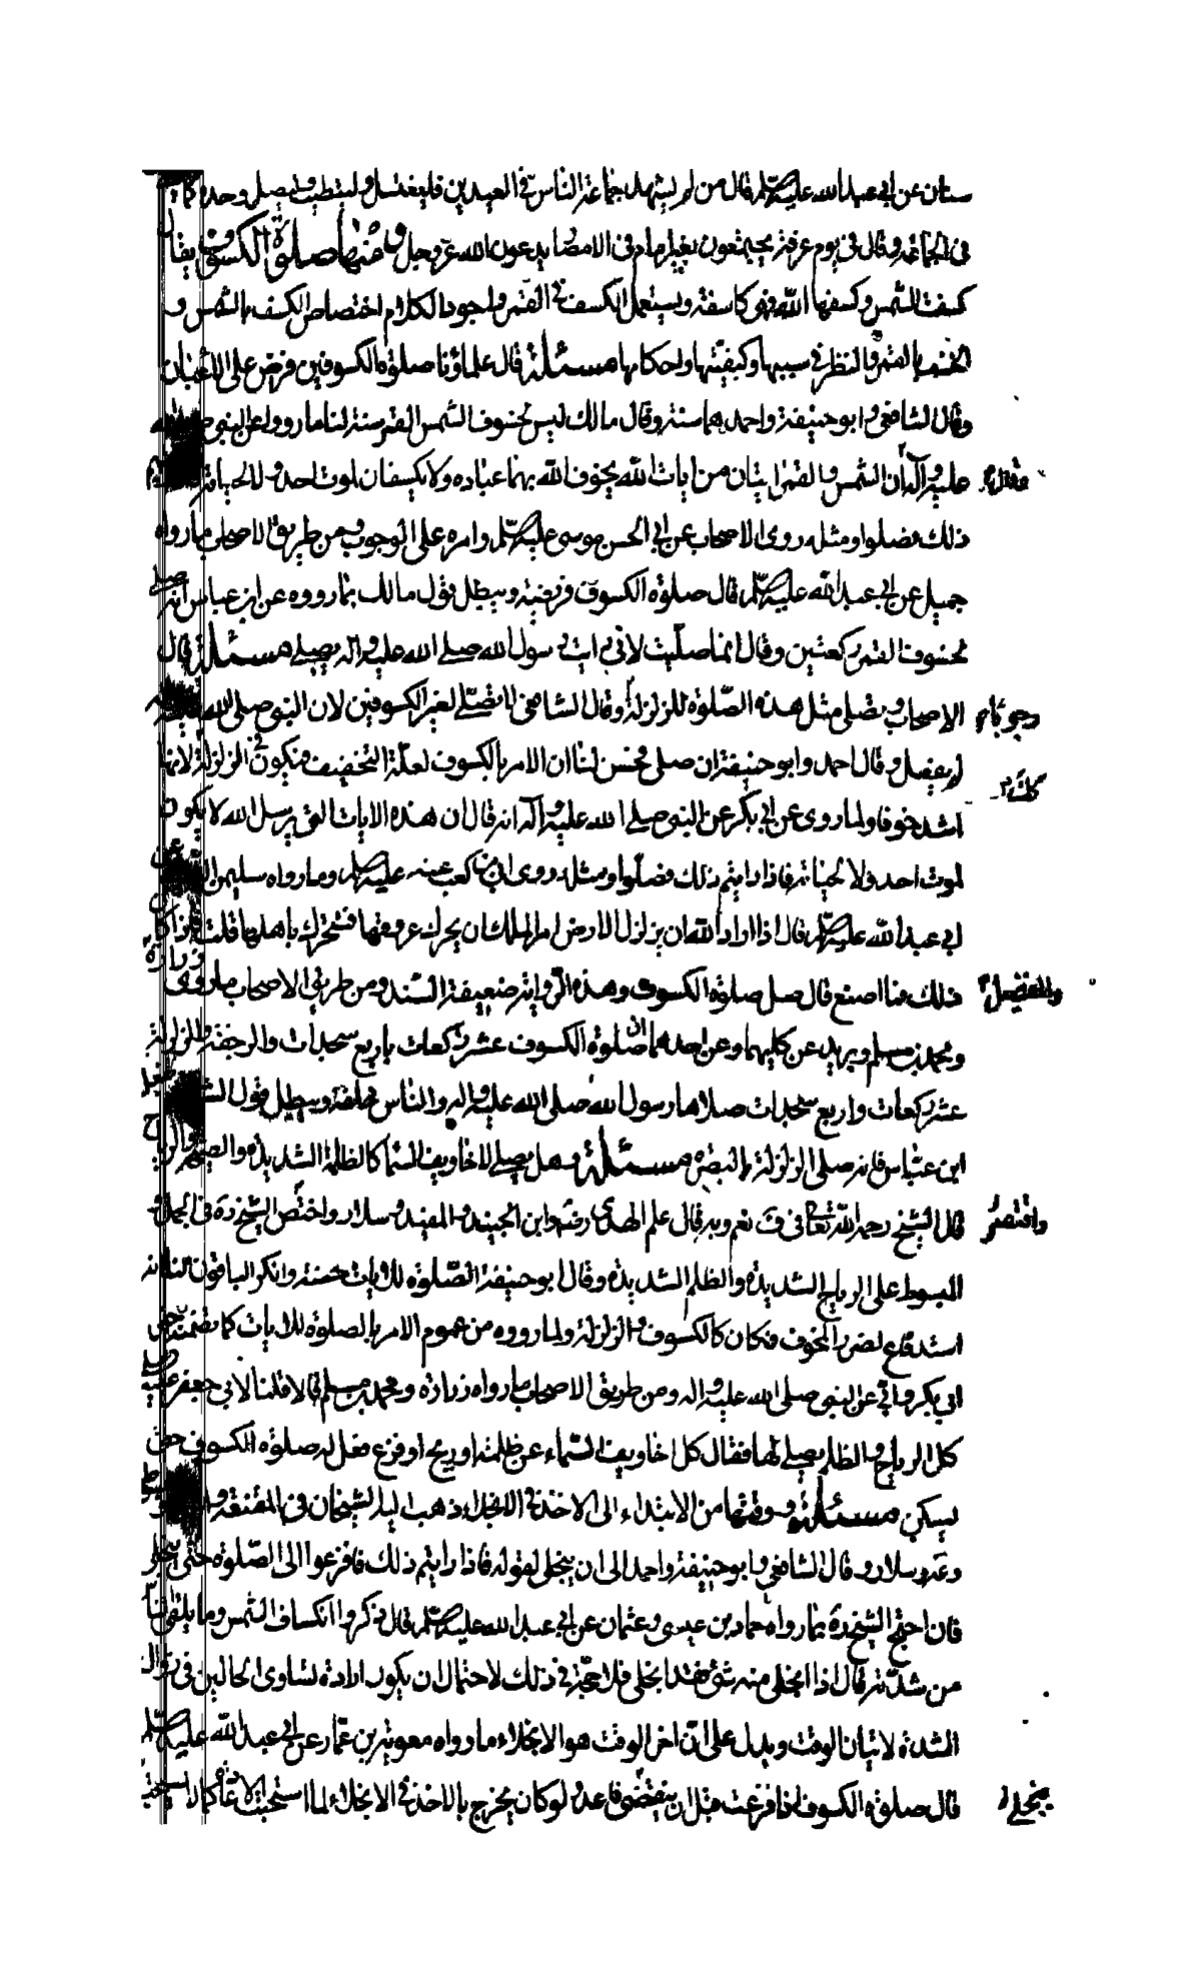 سنان عن ابي عبد الله عليه السلم قال من لم يشهد جماعة الناس في العيدين فليغتسل وليتطيب وليصل وحده كما
في الجماعة وقال في يوم عرفة يجتمعون بغير امام في الامصار يدعون الله عز وجل ومنها صلوة الكسوف يقال
كسفت الشمس وكسفها الله فهي كاسفة ويستعمل الكسف في القمر واجود الكلام اختصاص الكسف بالشمس و
الخسف بالقمر والنظر في سببها وكيفيتها واحكامها مسئلة قال علماؤنا صلوة الكسوفين فرض على الاعيان
وقال الشافعي وابو حنيفة واحمد هما سنة وقال مالك ليس لخسوف الشمس القمر سنة لنا ما رووا عن النبي صلى الله
عليه وآله ان الشمس والقمر ايتان من ايات الله يخوف الله بهما عباده ولا يكسفان لموت احد ولا لحياة
ذلك فصلوا ومثله روى الاصحاب عن ابي الحسن موسى عليه السلم وامره على الوجوب ومن طريق الاصحاب ما رواه
جميل عن ابي عبد الله عليه السلم قال صلوة الكسوف فريضة ويبطل قول مالك بما رووه عن ابن عباس انه صلى
لخسوف القمر ركعتين وقال انما صليت لاني رايت رسول الله صلى الله عليه وآله يصلي مسئلة قال
الاصحاب ويصلى مثل هذه الصلوة للزلزلة وقال الشافعي لا يصلى لغير الكسوفين لان النبي صلى الله عليه
لم يفعل وقال احمد وابو حنيفة ان صلى فحسن لنا ان الامر بالكسوف لعلة التخفيف فيكون في الزلزلة لانها
اشد خوفا ولما روى عن ابي بكر عن النبي صلى الله عليه وآله انه قال ان هذه الايات التي يرسل الله لا يكون
لموت احد ولا لحياته فاذا رايتم ذلك فصلوا ومثله روى ابي بن كعب عنه عليه السلم وما رواه سليمن عن
ابي عبد الله عليه السلم قال اذا اراد الله ان يزلزل الارض امر الملك ان يحرك عروقها فتتحرك باهلها قلت فاذا كان
ذلك فما اصنع قال صل صلوة الكسوف وهذه الرواية ضعيفة السند ومن طريق الاصحاب ما روى زرارة
ومحمد بن مسلم وبريد عن كليهما وعن احدهما ان صلوة الكسوف عشر ركعات باربع سجدات والرجفة والزلزلة
عشر ركعات واربع سجدات صلاها رسول الله صلى الله عليه وآله والناس خلفه ويبطل قول الشافعي بفعل
ابن عباس فانه صلى الزلزلة بالبصرة مسئلة وهل يصلى لاخاويف السماء كالظلمة الشديدة والصيحة والرياح
قال الشيخ رحمه الله تعالى في ف نعم وبه قال علم الهدى رضه وابن الجنيد والمفيد وسلار واختص الشيخ ره في الجمل
المبسوط على الرياح الشديدة والظلم الشديدة وقال ابو حنيفة الصلوة للايات حسنة وانكر الباقون لنا انه
استدفاع لضرر المخوف فكان كالكسوف والزلزلة ولما رووه من عموم الامر بالصلوة للايات كما يضمنه خبر
ابي بكر وابي عن النبي صلى الله عليه وآله ومن طريق الاصحاب ما رواه زرارة ومحمد بن مسلم قالا قلنا لابي جعفر عليه السلم
كل الرياح والظلم يصلى لها فقال كل اخاويف السماء عن ظلمة او ريح او فزع فصل له صلوة الكسوف حتى
يسكن مسئلة ووقتها من الابتداء الى الاخذ في الانجلاء ذهب اليه الشيخان في المقنعة و
وعده سلار وقال الشافعي وابو حنيفة واحمد الى ان ينجلي لقوله فاذا رايتم ذلك فافزعوا الى الصلوة حتى ينجلي
فان احتج الشيخ ره بما رواه حماد بن عيسى وعثمان عن ابي عبد الله عليه السلم قال ذكروا انكساف الشمس وما يلقى الناس
من شدته قال اذا انجلى منه شئ فقد انجلى فلا حجة في ذلك لاحتمال ان يكون اراد تساوى الحالين في زوال
الشدة لا بيان الوقت ويدل على ان اخر الوقت هو الانجلاء ما رواه معوية بن عمار عن ابي عبد الله عليه السلم
قال صلوة الكسوف اذا فرغت قبل ان ينقضى فاعد ولو كان يخرج بالاخذ في الانجلاء لما استحبت الاعادة
وجوبا
كذلك
والفضيل
واقتصر
ينجلي